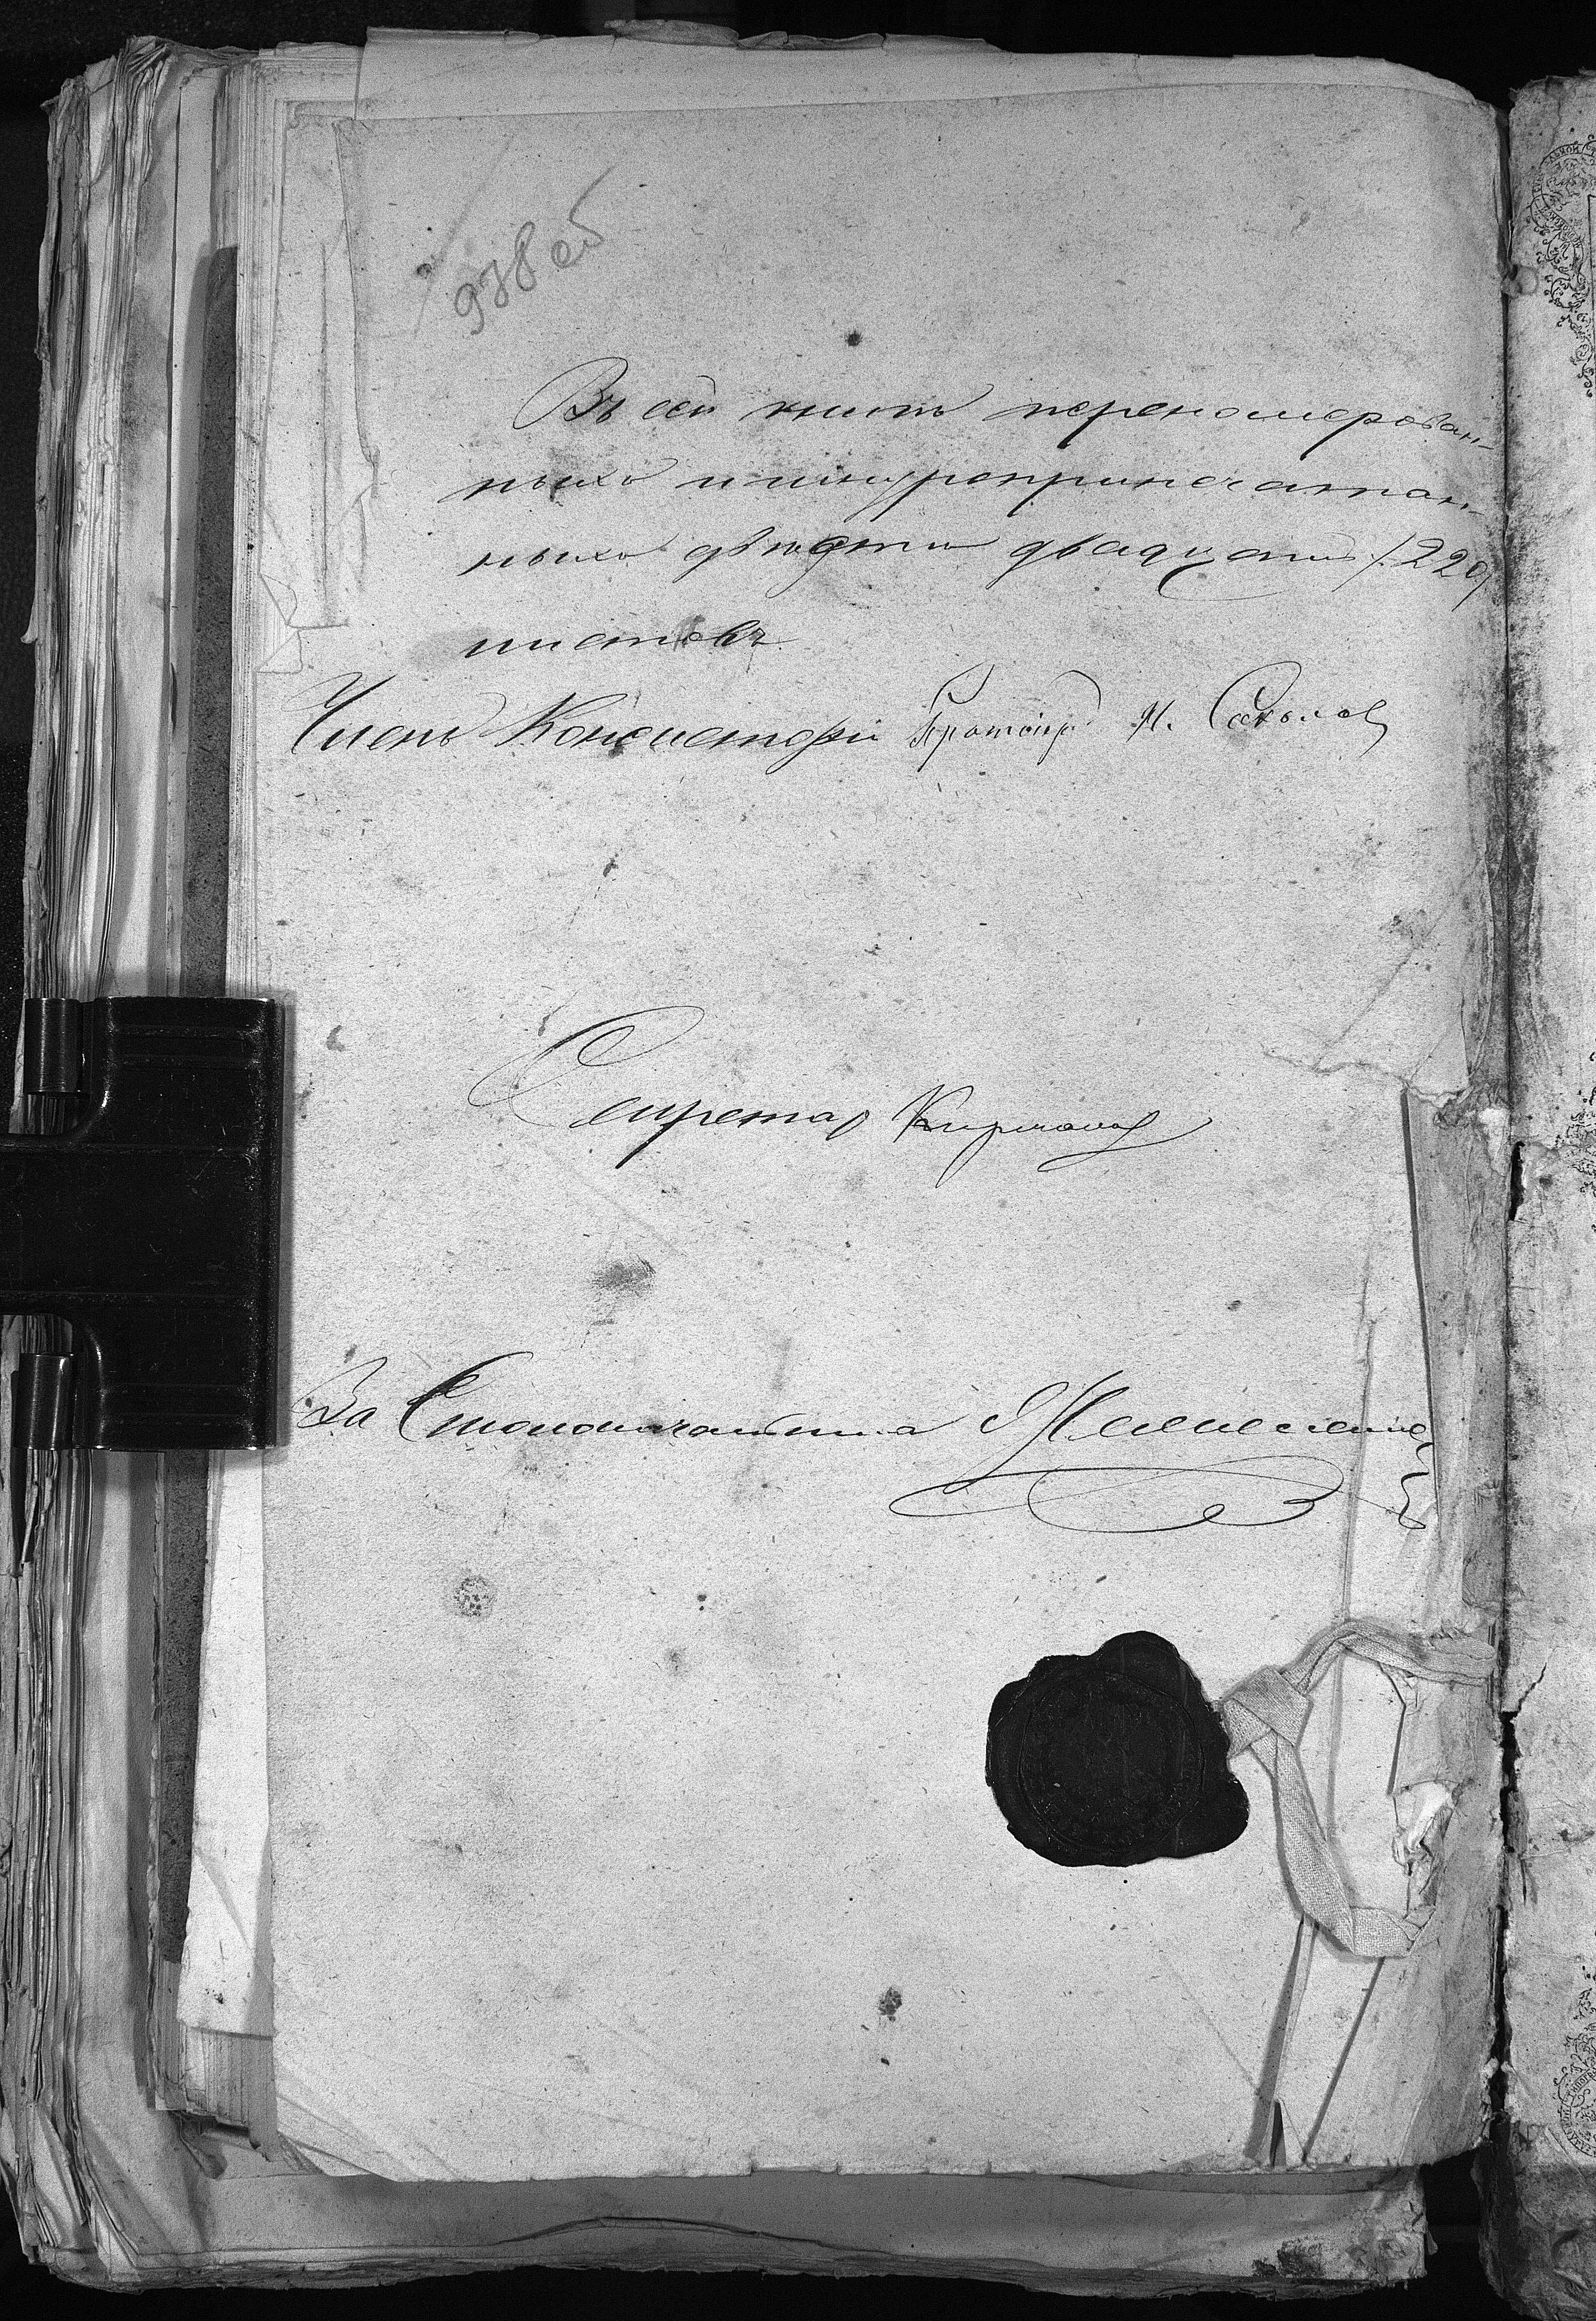 938 об
Въ сей книгѣ перенумерован-
ныхъ и шнуроприпечатан-
ныхъ двѣсти двадцать /220/
листовъ.
Членъ Консисторіи Протоіер. Н. Соколов
Секретарь
За Столоначальника